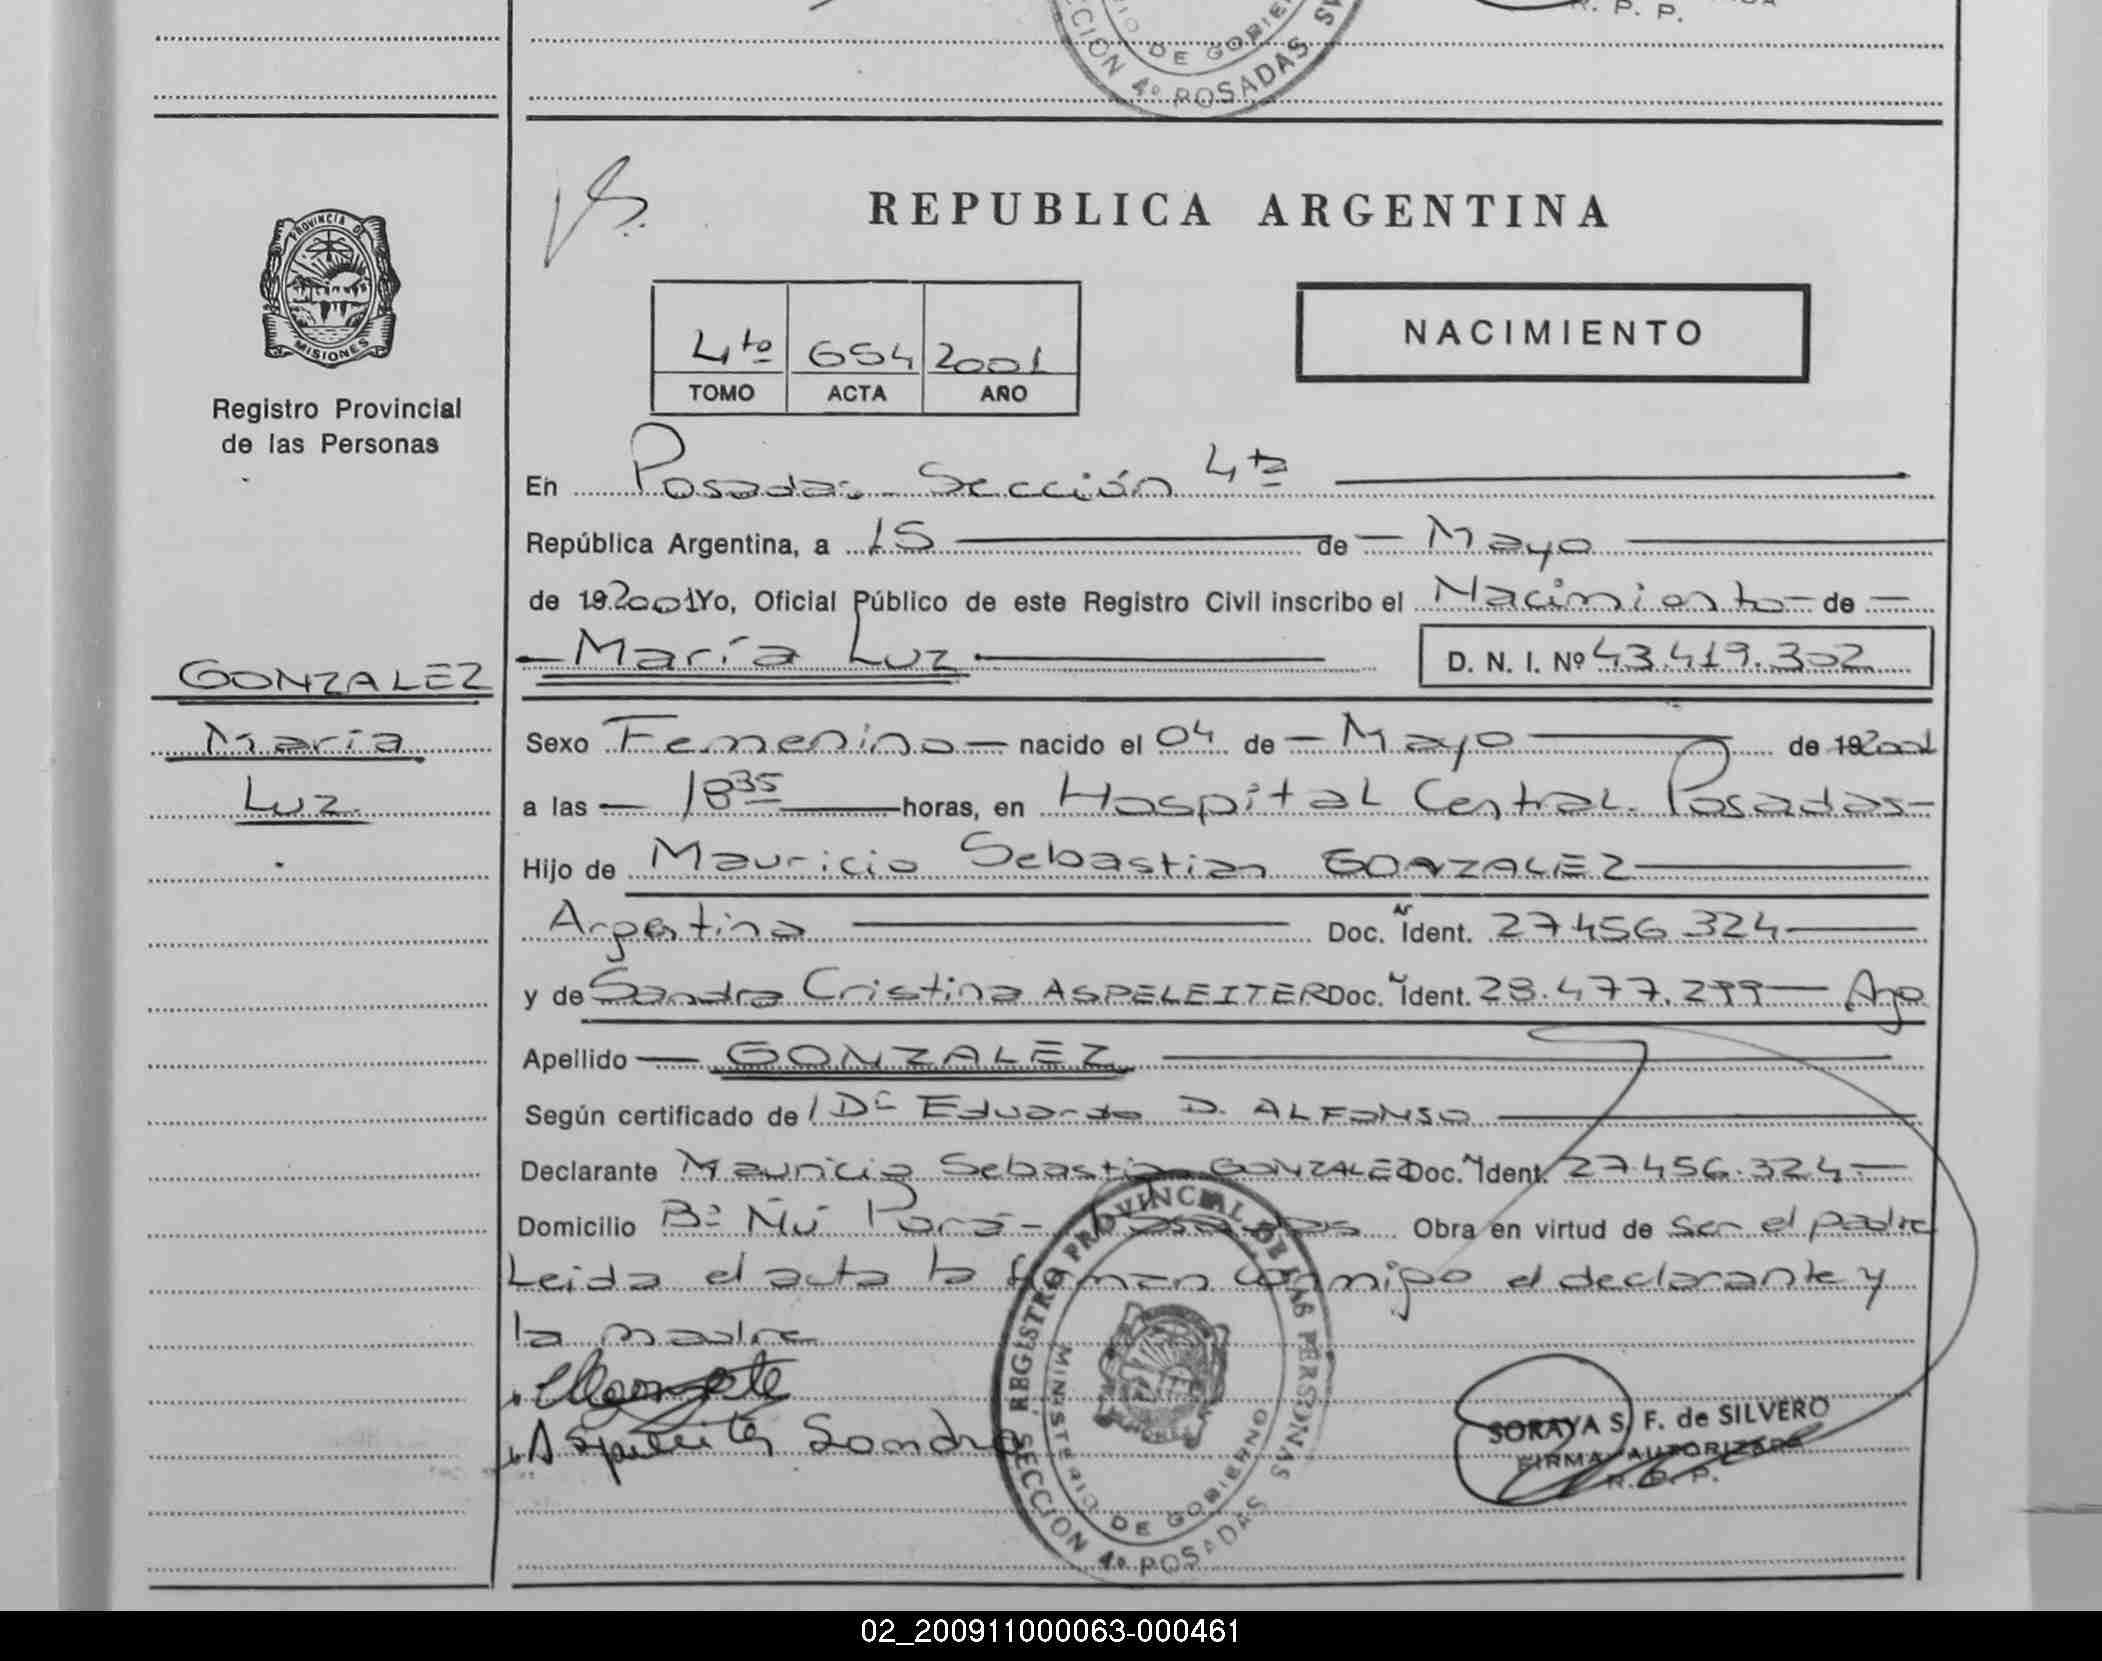 R. P. P.
CCION 4º POSADAS
DE GOBIE
PROVINCIA DE
MISIONES
Registro Provincial
de las Personas
GONZALEZ
María
Luz
REPUBLICA ARGENTINA
4to 654 2001
TOMO ACTA AÑO
NACIMIENTO
En Posadas Sección 4ta
República Argentina, a 15 de Mayo
de 19 2001 Yo, Oficial Público de este Registro Civil inscribo el Nacimiento de
María Luz D. N. I. Nº 43.419.302
Sexo Femenino nacido el 04 de Mayo de 19 2001
a las 18 35 horas, en Hospital Central Posadas
Hijo de Mauricio Sebastian GONZALEZ
Argentina Doc. Ident. 27.456.324
y de Sandra Cristina ASPELEITER Doc. Ident. 28.477.299 Arg
Apellido GONZALEZ
Según certificado de Dr Eduardo D. ALFONSO
Declarante Mauricio Sebastian GONZALEZ Doc. Ident. 27.456.324
Domicilio Bº Ñú Porá - Posadas Obra en virtud de ser el padre
Leida el acta la firman conmigo el declarante y
la madre
Aspeleiter Sandra
REGISTRO PROVINCIAL DE LAS PERSONAS
MINISTERIO DE GOBIERNO
SECCION 4º POSADAS
SORAYA S. F. de SILVERO
FIRMA AUTORIZADA
R. P. P.
02_200911000063-000461